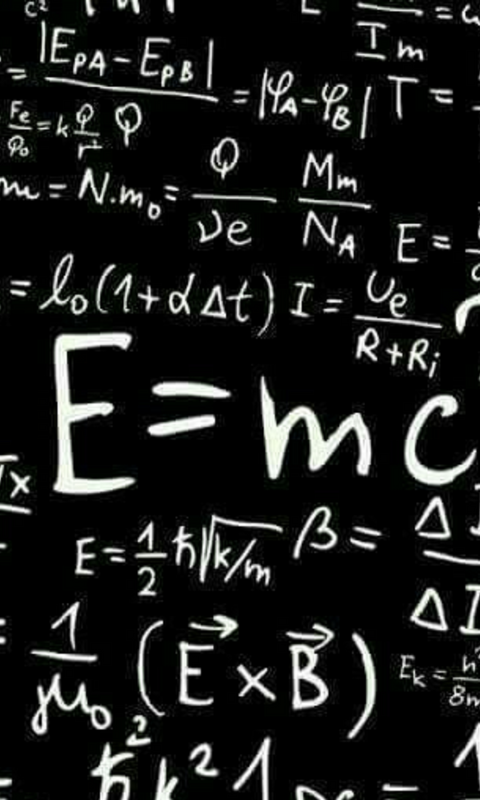 c²
E = — = c
I m
= |E_PA - E_PB| / = |φ_A - φ_B| T =
F_e / φ_0 = k Q / r² φ
m = N.m_0 = Q / νe M_m / N_A E =
= l_0 (1 + α Δt) I = U_e / R + R_i
E = m c
√x
E = 1/2 ħ √k/m β = Δ I / Δ I
= 1 / μ_0 (E⃗ × B⃗) E_k = h² / 8m
ħ² k² 1